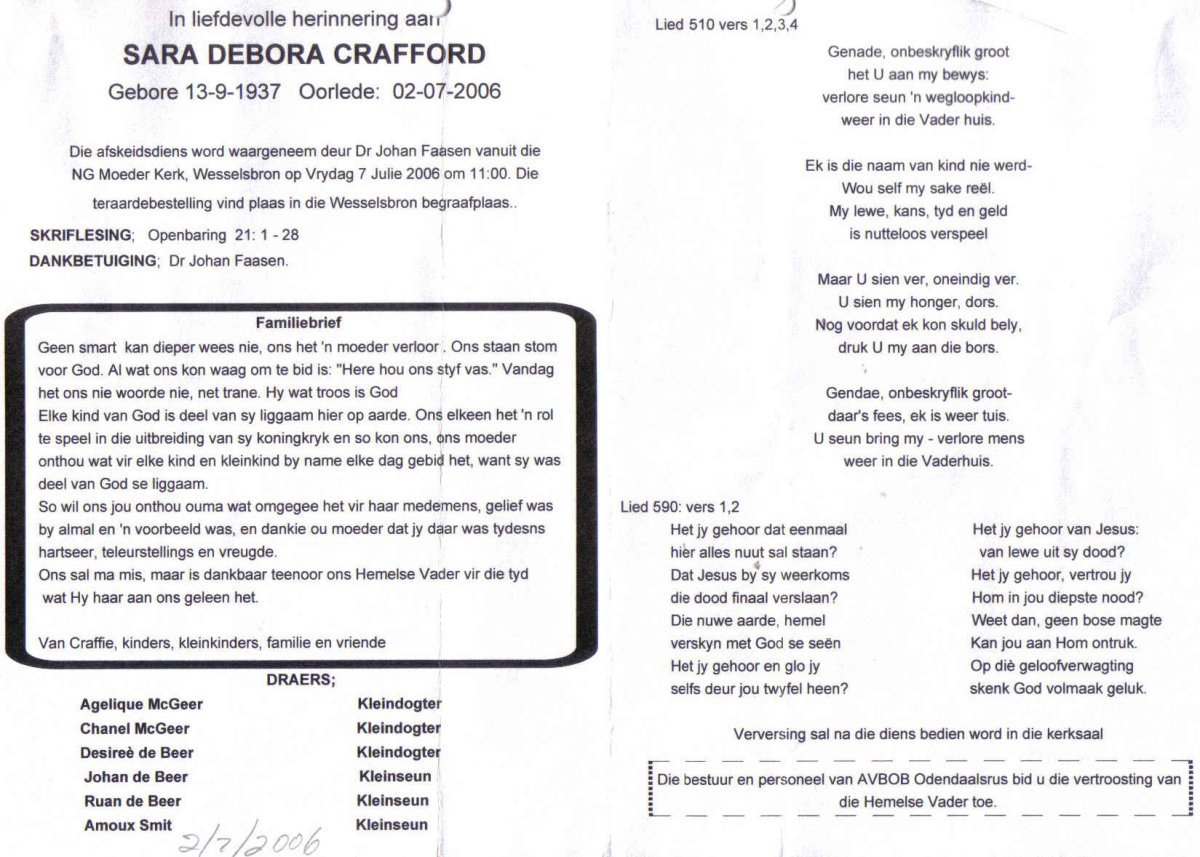 In liefdevolle herinnering aan
SARA DEBORA CRAFFORD
Gebore 13-9-1937 Oorlede: 02-07-2006
Die afskeidsdiens word waargeneem deur Dr Johan Faasen vanuit die
NG Moeder Kerk, Wesselsbron op Vrydag 7 Julie 2006 om 11:00. Die
teraardebestelling vind plaas in die Wesselsbron begraafplaas..
SKRIFLESING; Openbaring 21: 1 - 28
DANKBETUIGING; Dr Johan Faasen.
Familiebrief
Geen smart kan dieper wees nie, ons het 'n moeder verloor . Ons staan stom
voor God. Al wat ons kon waag om te bid is: "Here hou ons styf vas." Vandag
het ons nie woorde nie, net trane. Hy wat troos is God
Elke kind van God is deel van sy liggaam hier op aarde. Ons elkeen het 'n rol
te speel in die uitbreiding van sy koningkryk en so kon ons, ons moeder
onthou wat vir elke kind en kleinkind by name elke dag gebid het, want sy was
deel van God se liggaam.
So wil ons jou onthou ouma wat omgegee het vir haar medemens, gelief was
by almal en 'n voorbeeld was, en dankie ou moeder dat jy daar was tydesns
hartseer, teleurstellings en vreugde.
Ons sal ma mis, maar is dankbaar teenoor ons Hemelse Vader vir die tyd
wat Hy haar aan ons geleen het.
Van Craffie, kinders, kleinkinders, familie en vriende
DRAERS;
Agelique McGeer Kleindogter
Chanel McGeer Kleindogter
Desireè de Beer Kleindogter
Johan de Beer Kleinseun
Ruan de Beer Kleinseun
Amoux Smit Kleinseun
2/7/2006
Lied 510 vers 1,2,3,4
Genade, onbeskryflik groot
het U aan my bewys:
verlore seun 'n wegloopkind-
weer in die Vader huis.
Ek is die naam van kind nie werd-
Wou self my sake reël.
My lewe, kans, tyd en geld
is nutteloos verspeel
Maar U sien ver, oneindig ver.
U sien my honger, dors.
Nog voordat ek kon skuld bely,
druk U my aan die bors.
Gendae, onbeskryflik groot-
daar's fees, ek is weer tuis.
U seun bring my - verlore mens
weer in die Vaderhuis.
Lied 590: vers 1,2
Het jy gehoor dat eenmaal
hier alles nuut sal staan?
Dat Jesus by sy weerkoms
die dood finaal verslaan?
Die nuwe aarde, hemel
verskyn met God se seën
Het jy gehoor en glo jy
selfs deur jou twyfel heen?
Het jy gehoor van Jesus:
van lewe uit sy dood?
Het jy gehoor, vertrou jy
Hom in jou diepste nood?
Weet dan, geen bose magte
Kan jou aan Hom ontruk.
Op diè geloofverwagting
skenk God volmaak geluk.
Verversing sal na die diens bedien word in die kerksaal
Die bestuur en personeel van AVBOB Odendaalsrus bid u die vertroosting van
die Hemelse Vader toe.